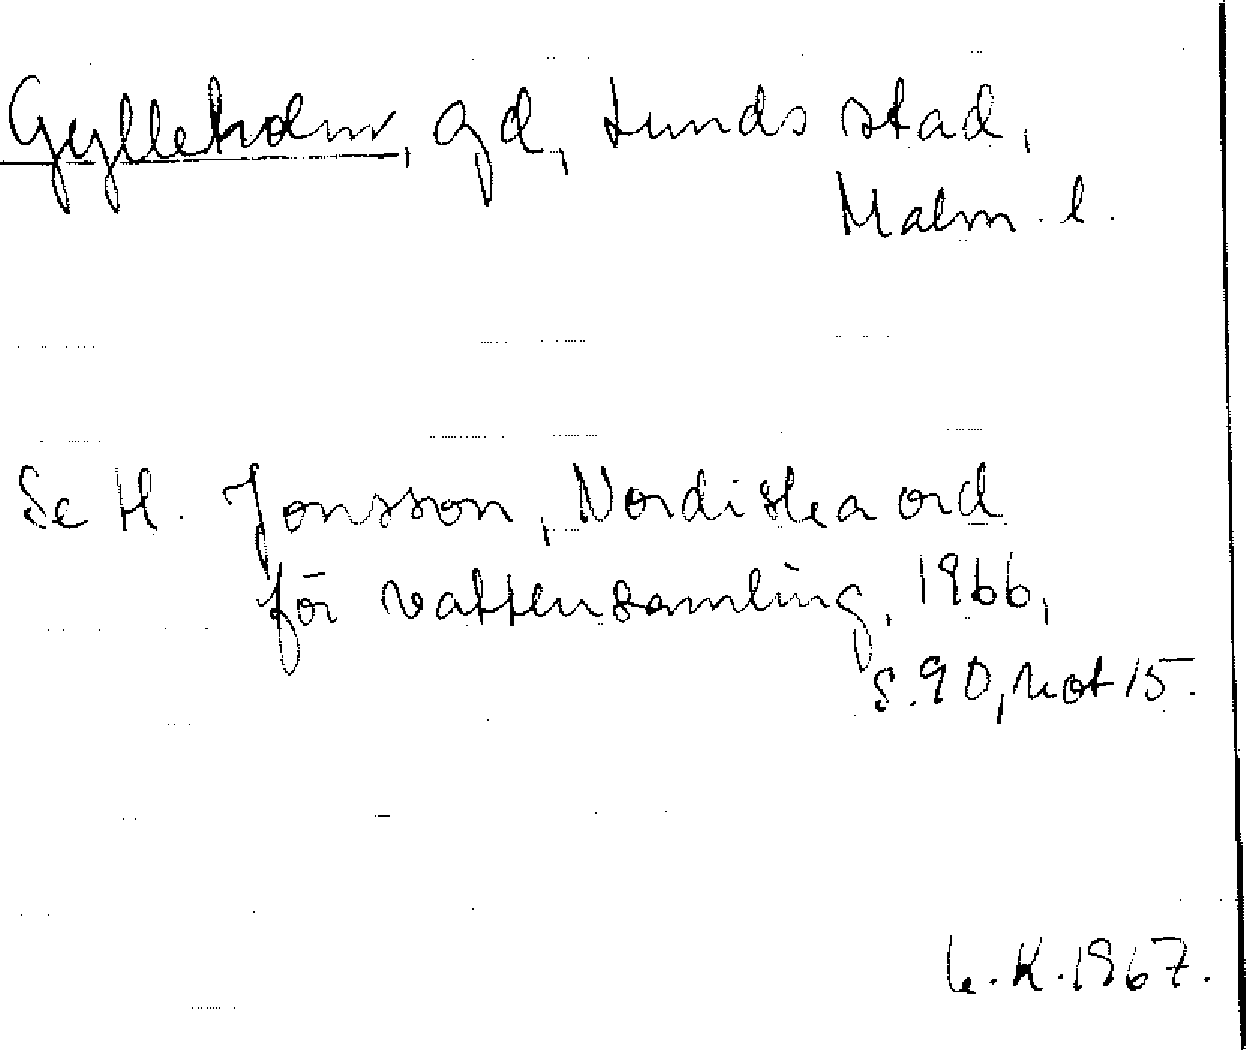 Gylleholm, gd, Lunds stad,
Malm. l.
Se H. Jonsson, Nordiska ord
för vattensamling, 1966,
s. 90, not 15.
K. 1967.